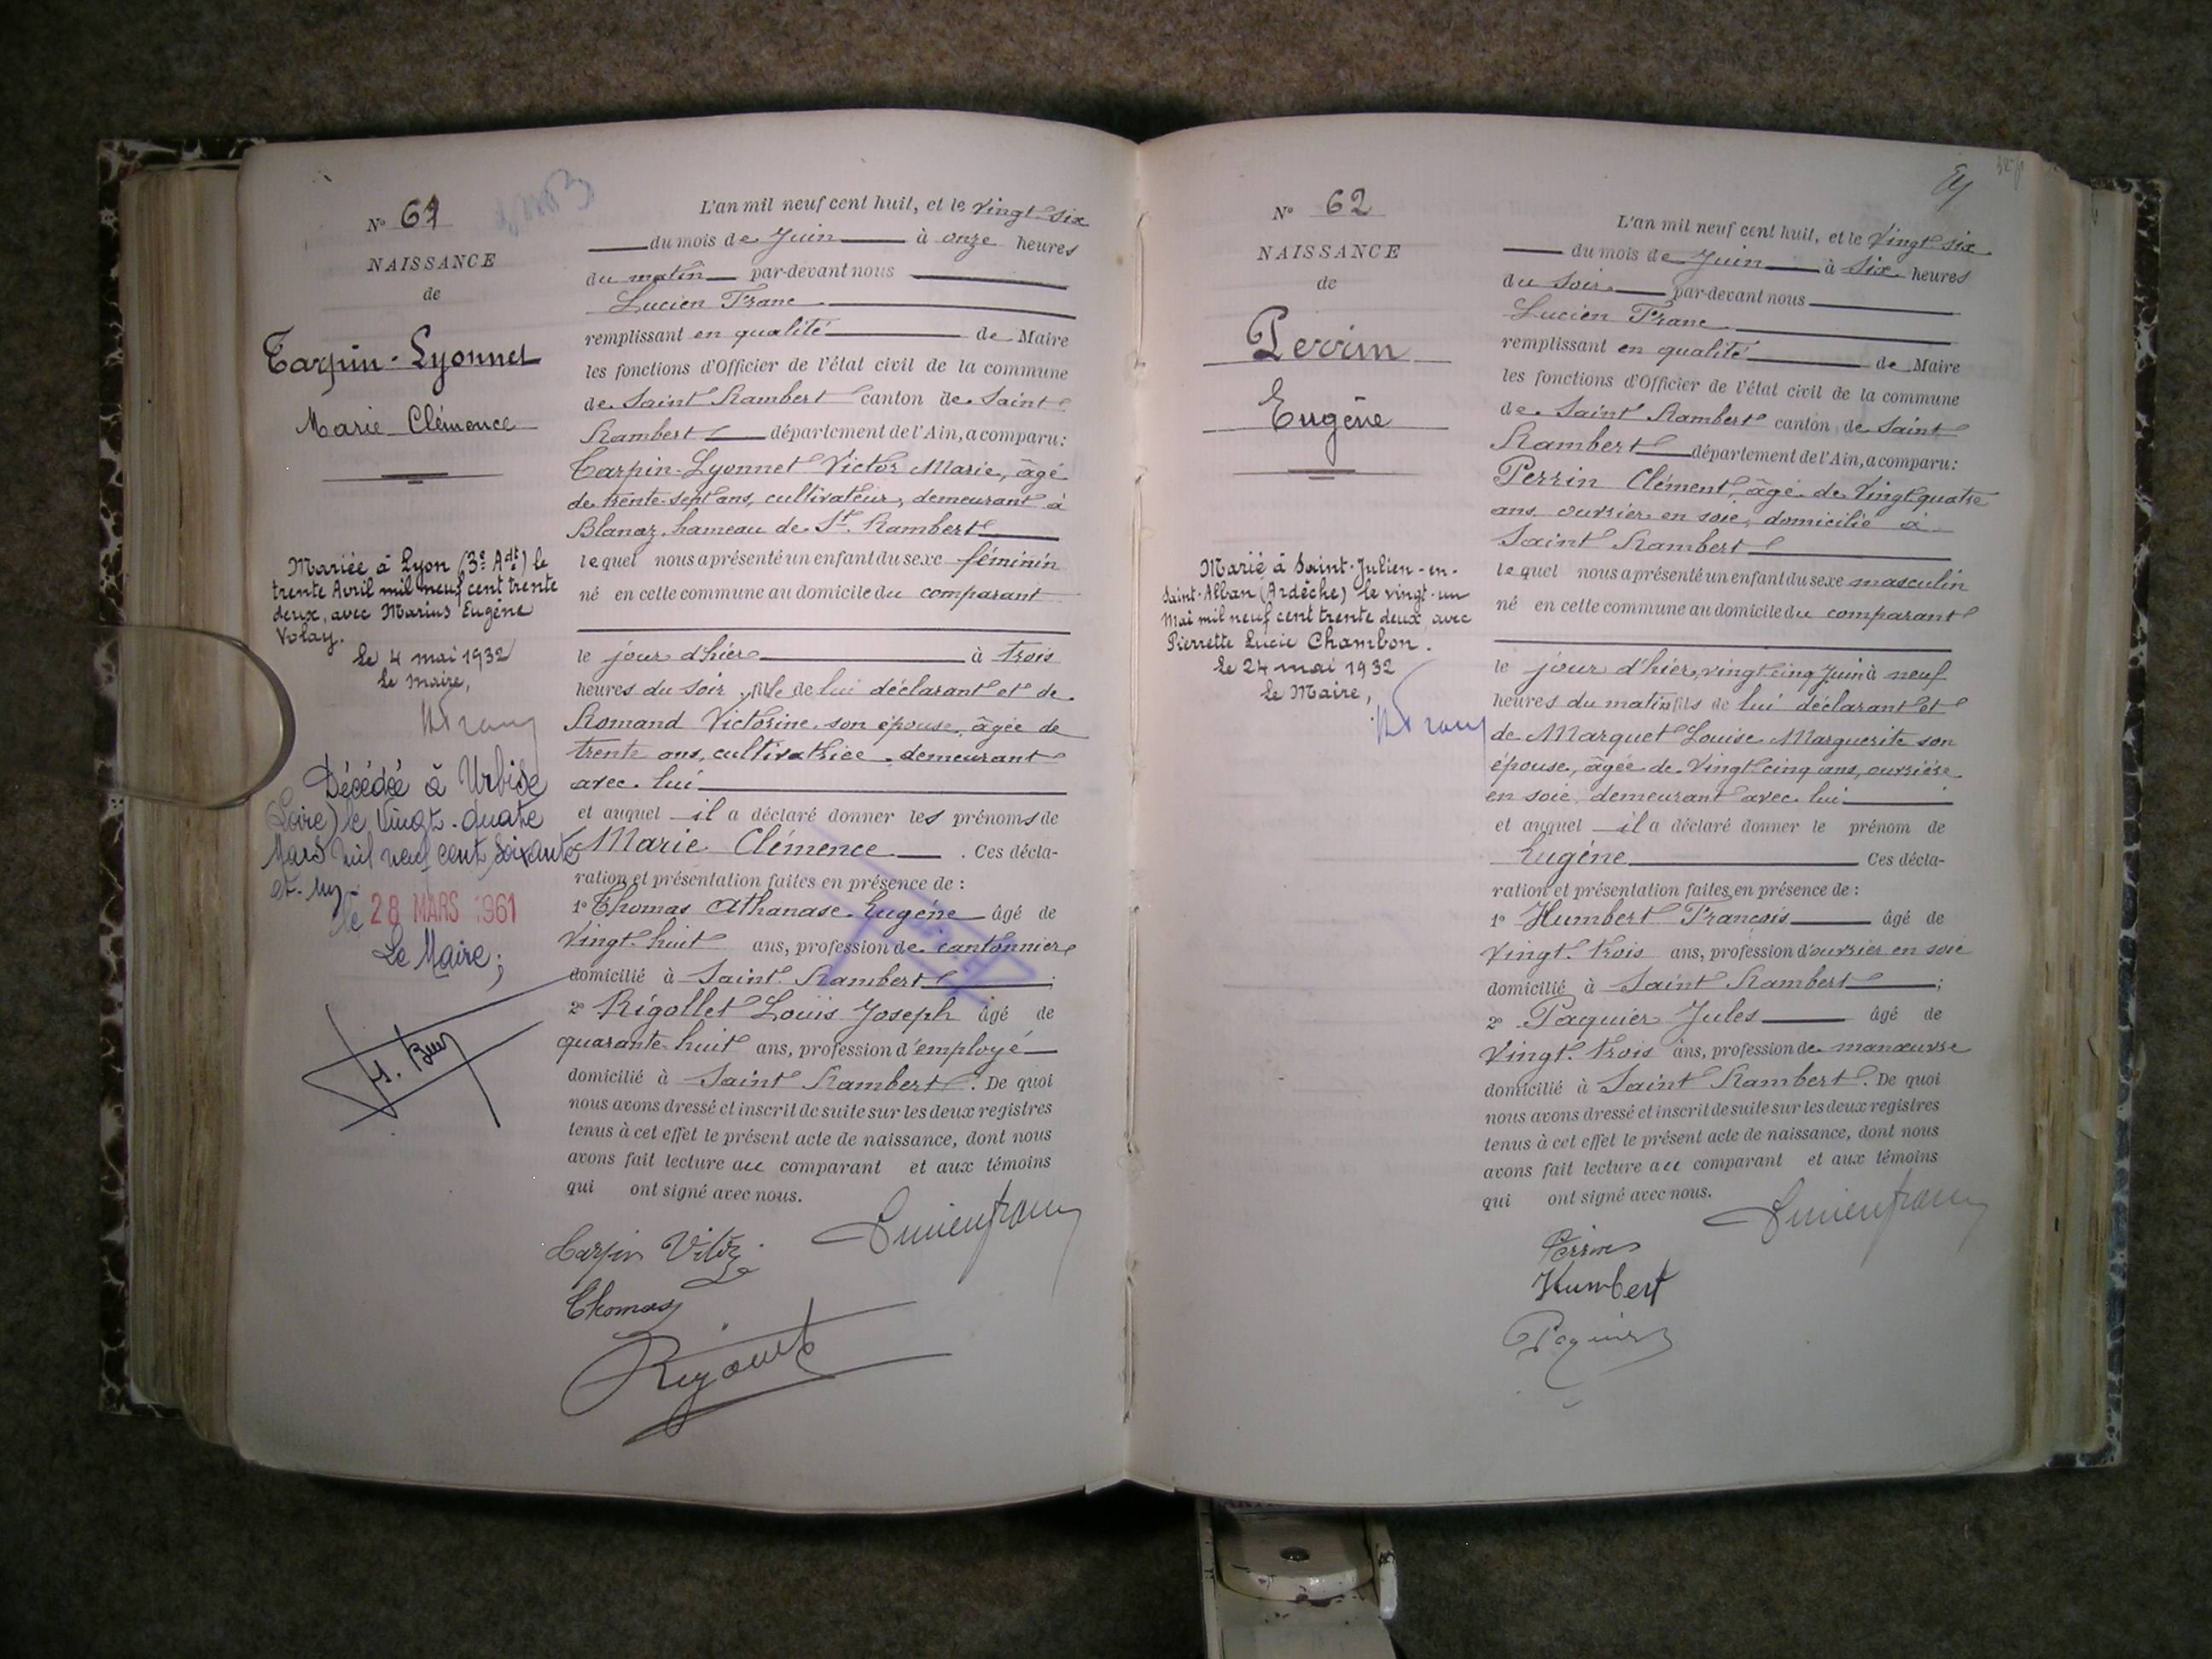 N° 61
NAISSANCE
de
Tarpin-Lyonnet
Marie Clémence
Mariée à Lyon (3e Adt) le
trente Avril mil neuf cent trente
deux, avec Marius Eugène
Volay.
Le 4 mai 1932
Le Maire,
Décédée à Urbise
(Loire) le Vingt-quatre
Mars mil neuf cent soixante
et-un
le 28 MARS 1961
Le Maire;
L'an mil neuf cent huit, et le vingt-six
du mois de Juin à onze heures
du matin par-devant nous
Lucien Franc
remplissant en qualité de Maire
les fonctions d'Officier de l'état civil de la commune
de Saint Rambert canton de Saint
Rambert département de l'Ain, a comparu:
Tarpin-Lyonnet Victor Marie, âgé
de trente-sept ans, cultivateur, demeurant à
Blanaz, hameau de St. Rambert
lequel nous a présenté un enfant du sexe féminin
né en cette commune au domicile du comparant
le jour d'hier à trois
heures du soir, fille de lui déclarant et de
Romand Victorine, son épouse, âgée de
trente ans, cultivatrice, demeurant
avec lui
et auquel il a déclaré donner les prénoms de
Marie Clémence . Ces décla-
ration et présentation faites en présence de :
1° Thomas Athanase Eugène âgé de
vingt-huit ans, profession de cantonnier
domicilié à Saint Rambert ;
2° Rigollet Louis Joseph âgé de
quarante-huit ans, profession d'employé
domicilié à Saint Rambert. De quoi
nous avons dressé et inscrit de suite sur les deux registres
tenus à cet effet le présent acte de naissance, dont nous
avons fait lecture au comparant et aux témoins
qui ont signé avec nous.
Tarpin Lucien Franc
Thomas
N° 62
NAISSANCE
de
Perrin
Eugène
Marié à Saint-Julien-en-
Saint-Alban (Ardèche) le vingt-un
Mai mil neuf cent trente deux, avec
Pierrette Lucie Chambon.
Le 24 mai 1932
Le Maire,
L'an mil neuf cent huit, et le vingt-six
du mois de Juin à six heures
du soir par-devant nous
Lucien Franc
remplissant en qualité de Maire
les fonctions d'Officier de l'état civil de la commune
de Saint Rambert canton de Saint
Rambert département de l'Ain, a comparu:
Perrin Clément, âgé de vingt-quatre
ans ouvrier en soie, domicilié à
Saint Rambert
lequel nous a présenté un enfant du sexe masculin
né en cette commune au domicile du comparant
le jour d'hier, vingt-cinq Juin à neuf
heures du matin fils de lui déclarant et
de Marquet Louise Marguerite son
épouse, âgée de vingt-cinq ans, ouvrière
en soie, demeurant avec lui
et auquel il a déclaré donner le prénom de
Eugène Ces décla-
ration et présentation faites en présence de :
1° Humbert François âgé de
vingt-trois ans, profession d'ouvrier en soie
domicilié à Saint Rambert ;
2° Paquier Jules âgé de
vingt-trois ans, profession de manœuvre
domicilié à Saint Rambert. De quoi
nous avons dressé et inscrit de suite sur les deux registres
tenus à cet effet le présent acte de naissance, dont nous
avons fait lecture au comparant et aux témoins
qui ont signé avec nous.
Lucien Franc
Perrin
Humbert
Paquier